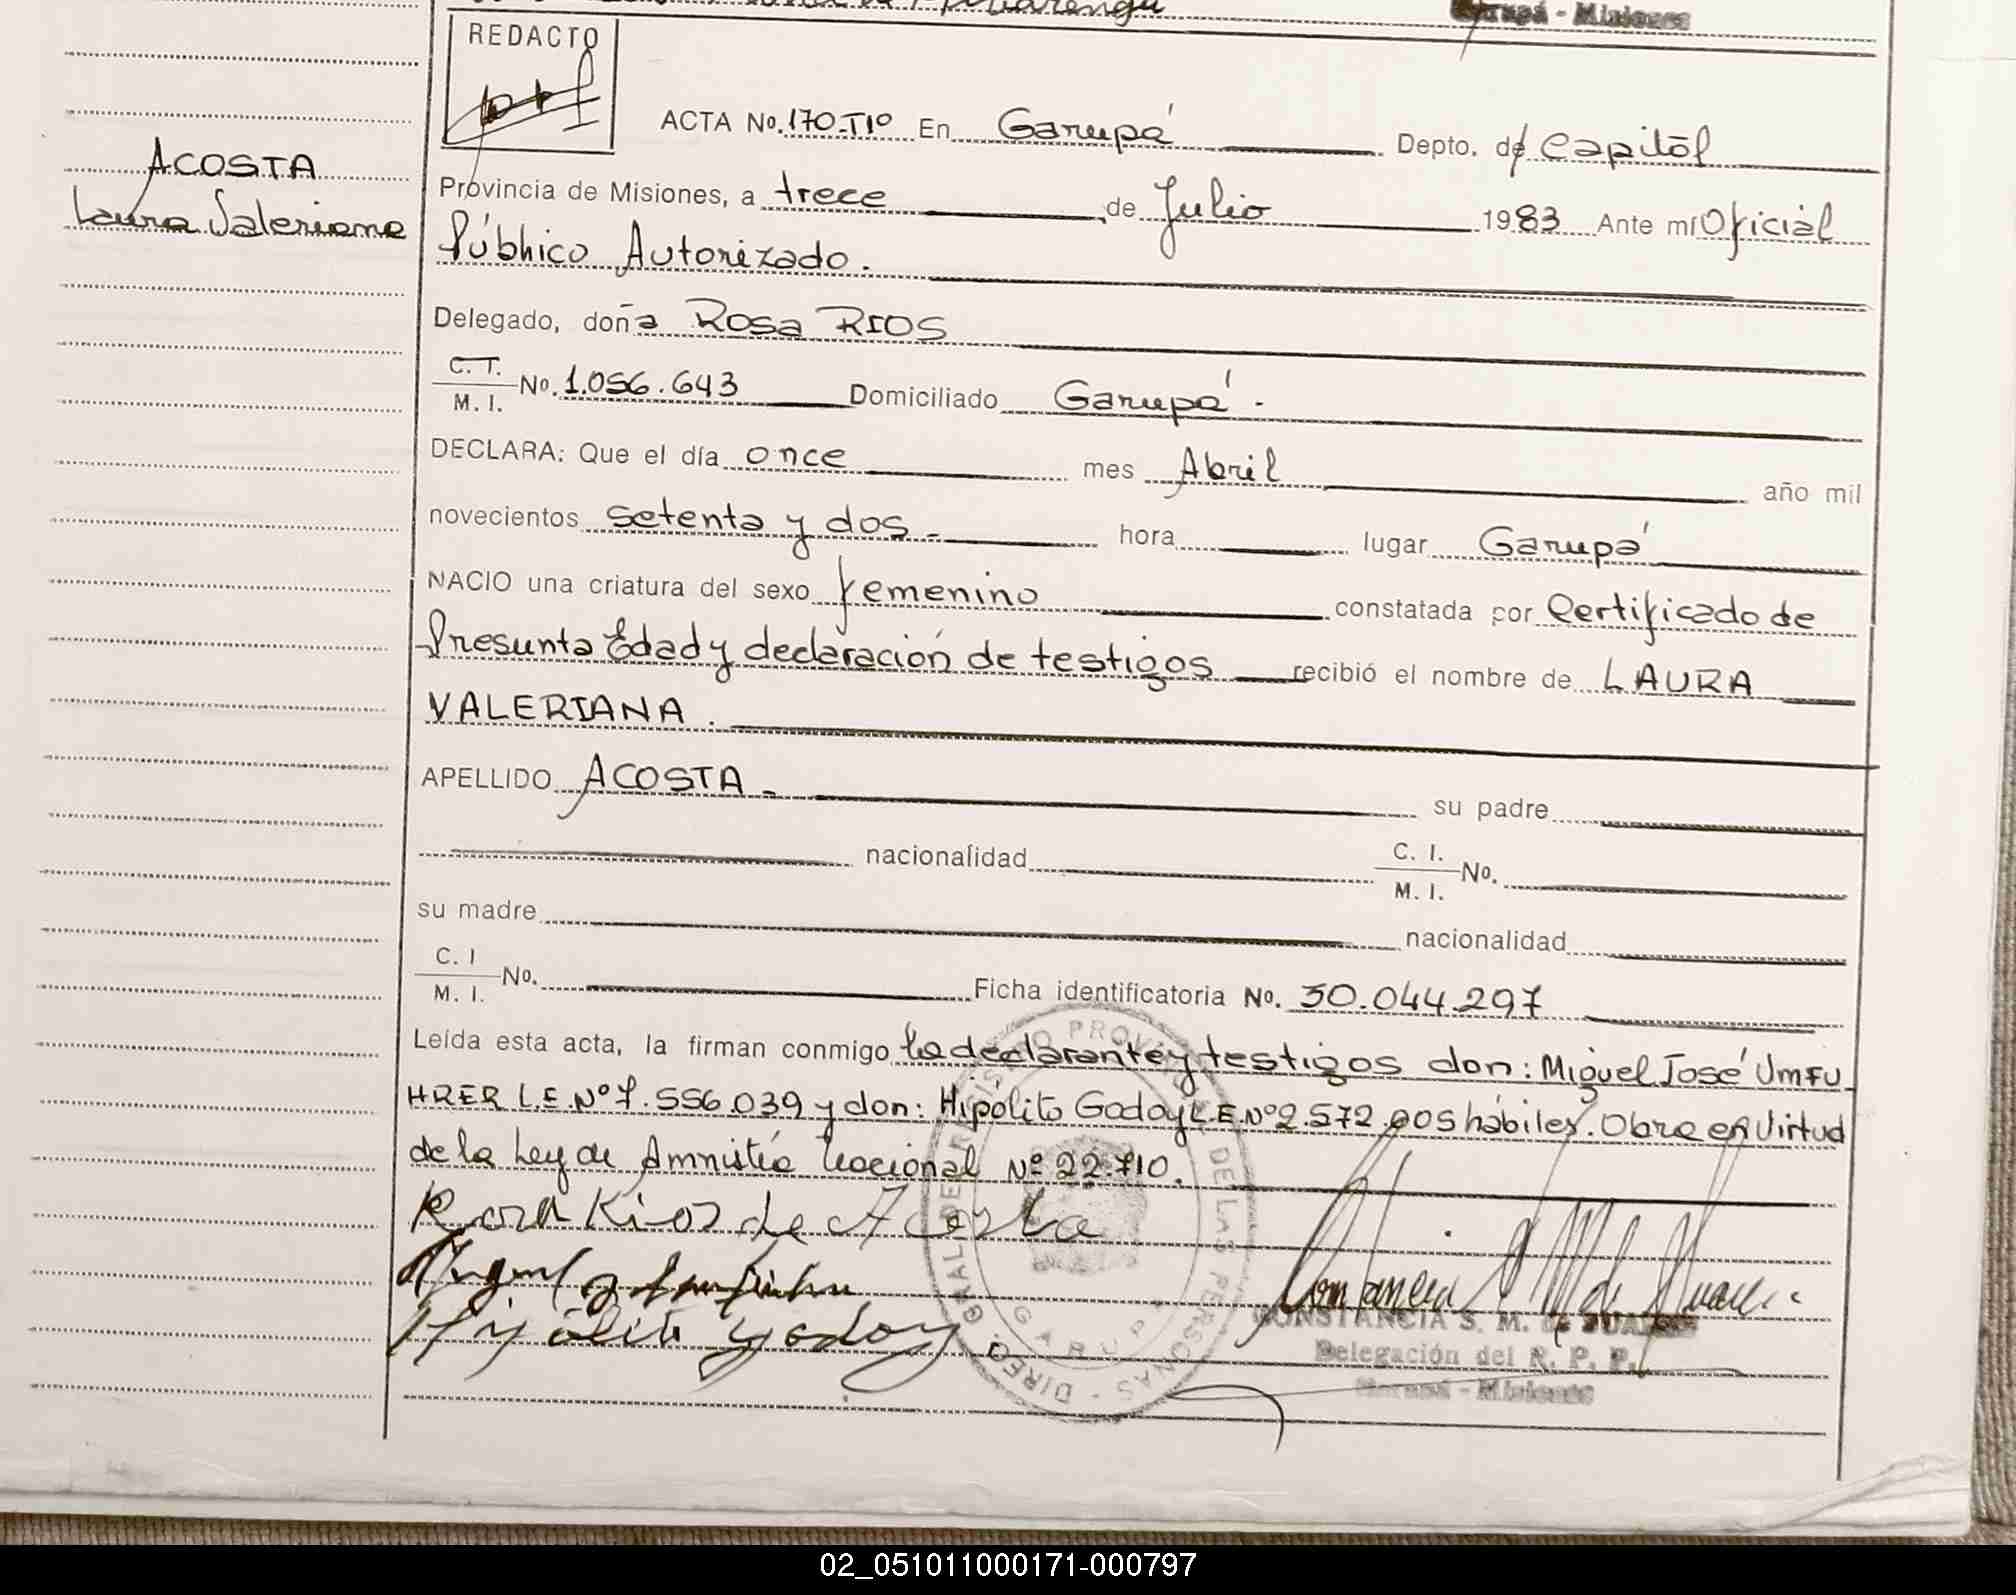 Garupá - Misiones
REDACTO
ACTA No. 170-T1º En Garupá Depto. de Capital
ACOSTA
Laura Valeriana
Provincia de Misiones, a trece de Julio 1983 Ante mí Oficial
Público Autorizado.
Delegado, doña Rosa RIOS
C. T. M. I. No. 1.056.643 Domiciliado Garupá.-
DECLARA: Que el día once mes Abril año mil
novecientos setenta y dos.- hora lugar Garupá
NACIO una criatura del sexo femenino constatada por Certificado de
Presunta Edad y declaración de testigos recibió el nombre de LAURA
VALERIANA.
APELLIDO ACOSTA.- su padre
nacionalidad C. I. M. I. No.
su madre nacionalidad
C. I M. I. No. Ficha identificatoria No. 30.044.297
Leída esta acta, la firman conmigo la declarante y testigos don: Miguel José UMFU-
HRER L.E.Nº 7.556.039 y don: Hipólito Godoy L.E.Nº 2.572.005 hábiles. Obra en Virtud
de la Ley de Amnistía Nacional Nº 22.710.
Rosa Rios de Acosta
Hipólito Godoy
CONSTANCIA S. M. de SUAREZ
Delegación del R. P. P.
Garupá - Misiones
DE LAS PERSONAS
GARUPA
02_051011000171-000797